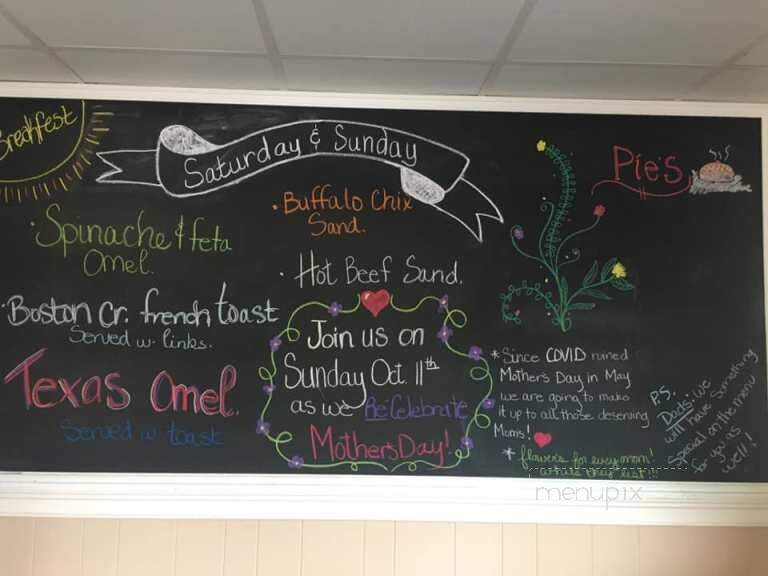 Breakfest
Saturday & Sunday
• Spinache & feta
Omel.
• Boston Cr. french toast
Served w. links.
Texas Omel.
Served w. toast
• Buffalo Chix
Sand.
• Hot Beef Sand.
Join us on
Sunday Oct. 11th
as we Re-Celebrate
Mother's Day!
Pie's
* Since COVID ruined
Mother's Day in May
we are going to make
it up to all those deserving
Moms!
* flowers for every mom!
P.S.
Dads: we
will have something
special on the menu
for you as
well!
menupix